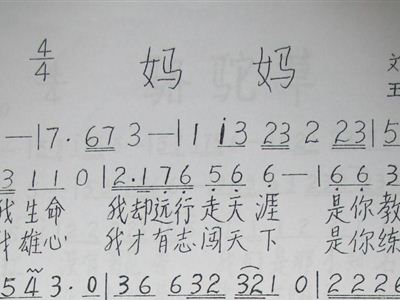 4/4 妈 妈 文
王
— | 7. 67 3 — | 1 1 i3 23 2 23 | 5
3 1 1 0 | 2.176 5 6 6 — | 6 6 3
我 生 命 我却远行 走天 涯 是你教
我 雄 心 我才有志 闯天 下 是你练
5 4 3. 0 | 3 6 6 32 321 0 | 2 2 2 6